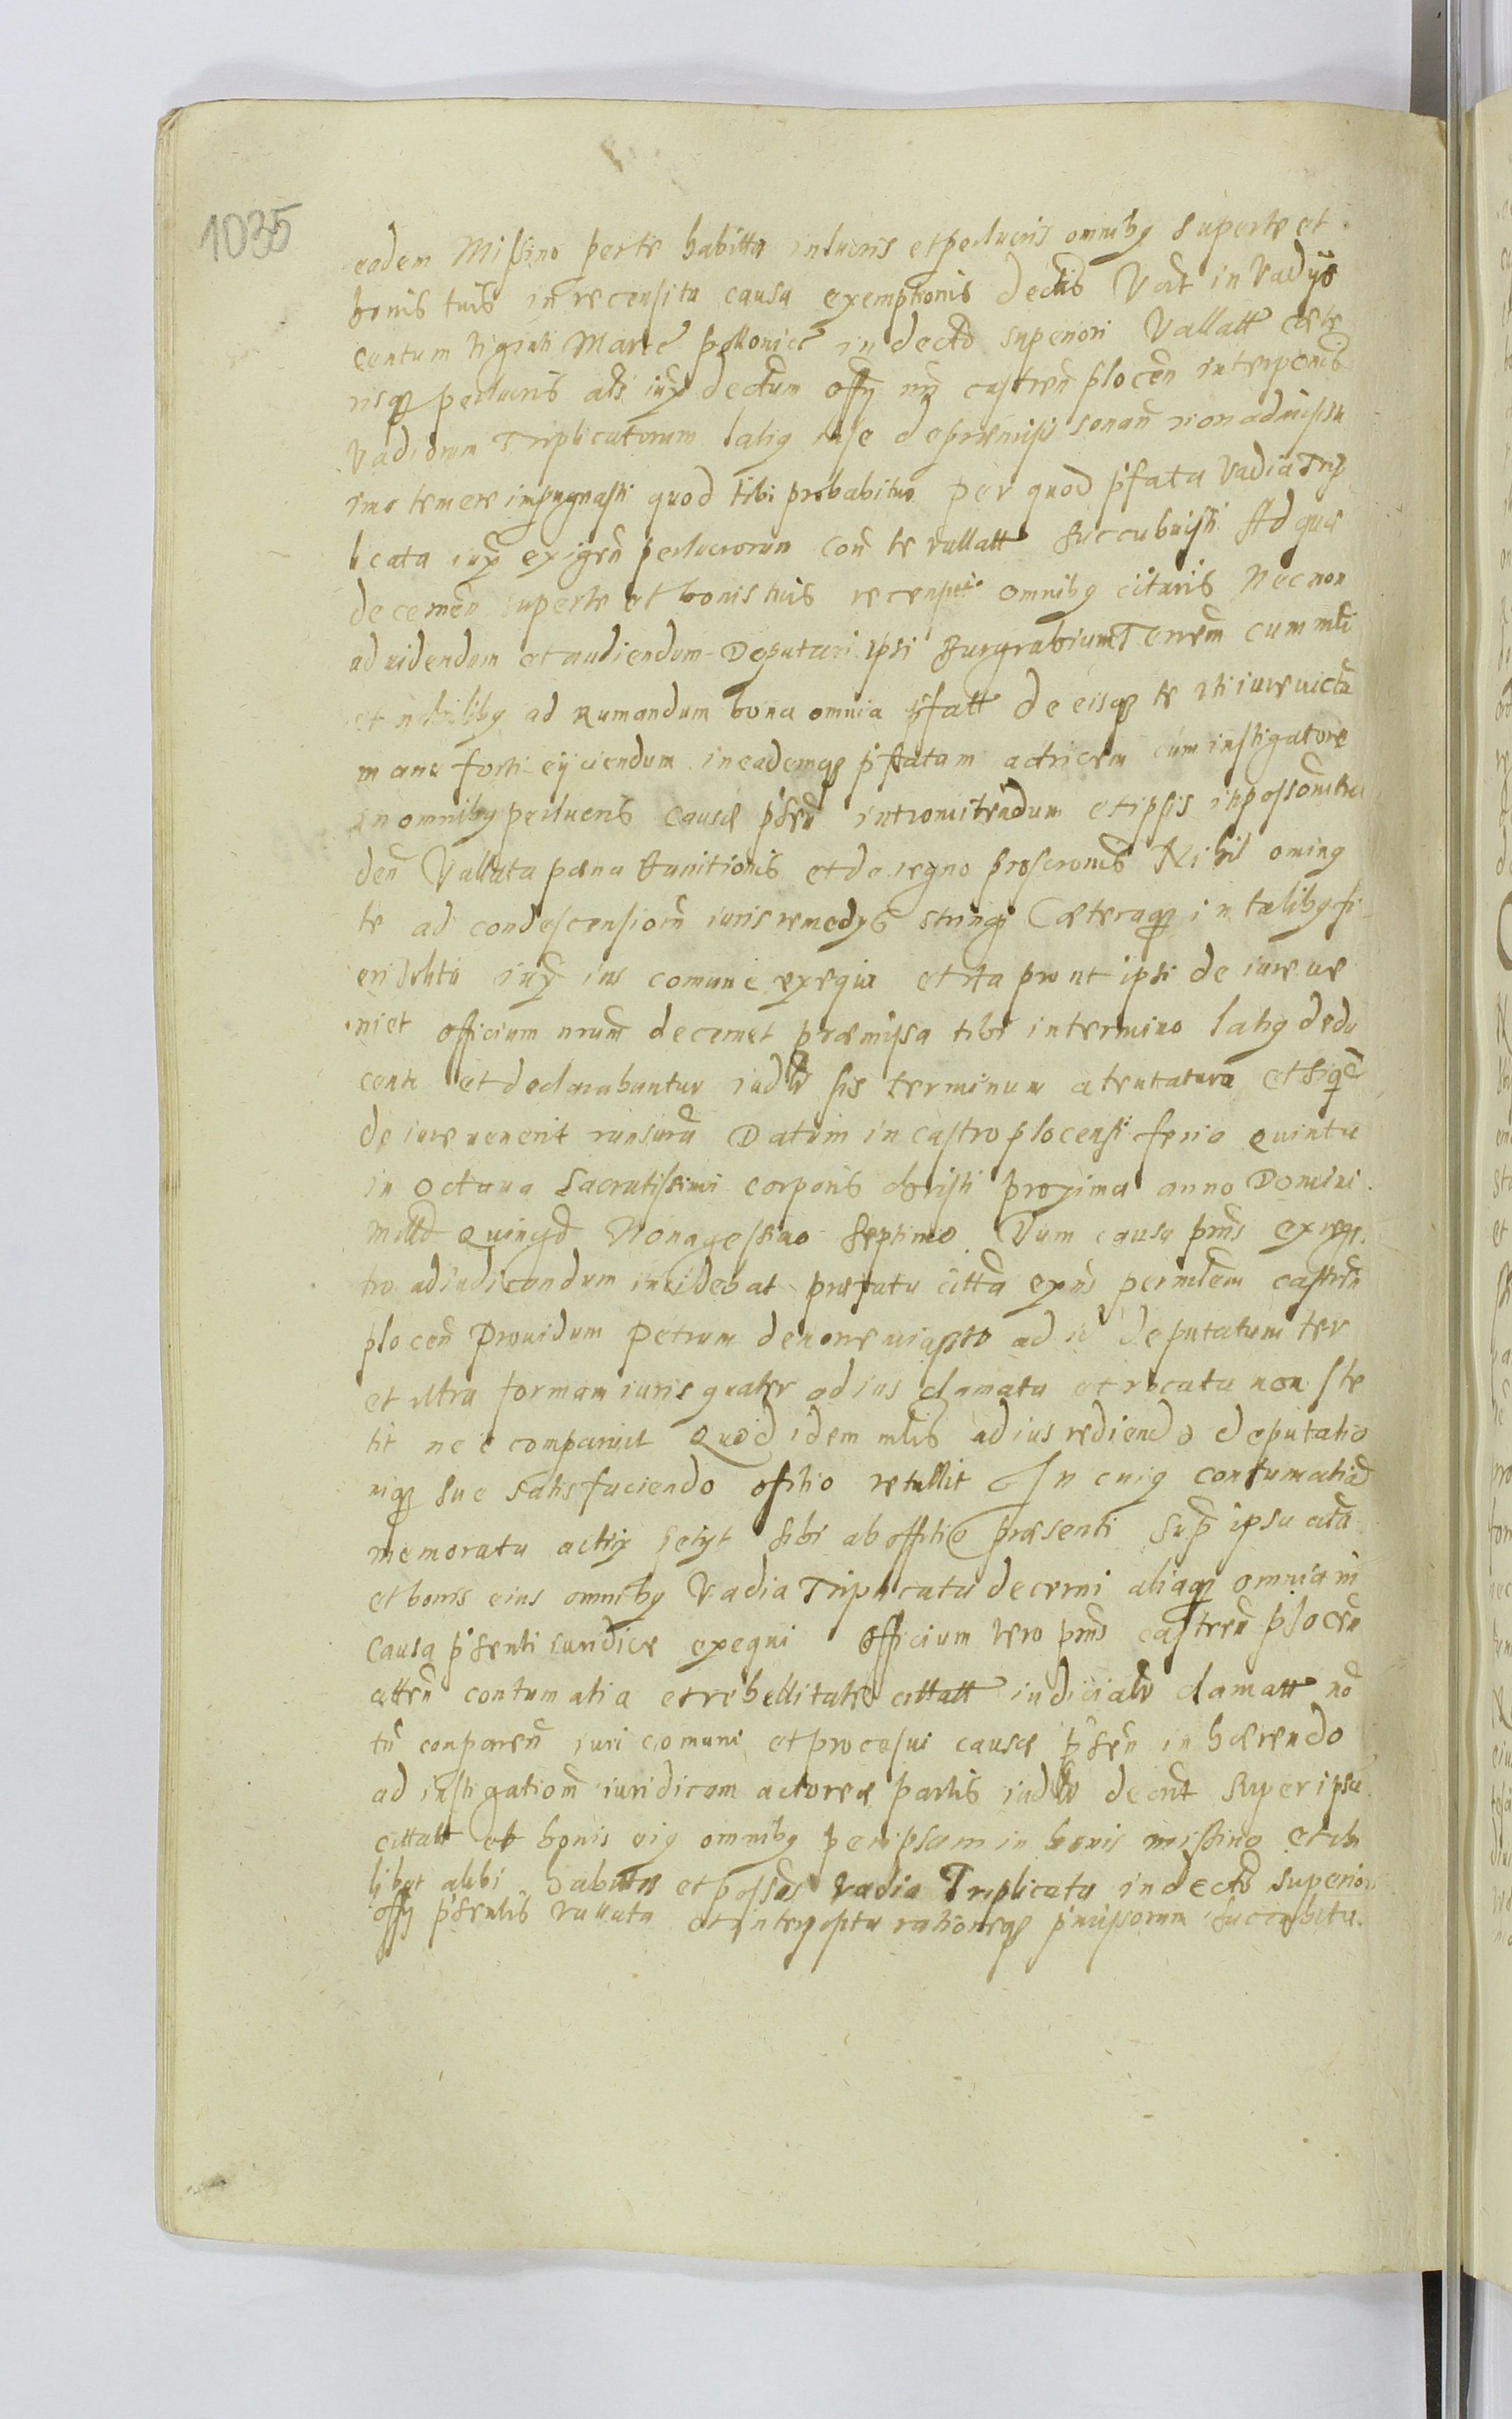 1035
eadem Missino per te habitta in lucris et perlucris omnibg super te et
bonis tuis in recensita causa exemptionis dectis Vert in Vadys
centum Viginti Marce polonice in decto superiori Vallatt cete
risq perlucris als iux dectum offy nri castren plocen interponis
Vadiorum Triplicatorum latig in se de praemissis sonan non admissa
imo temere impugnasti quod tibi probabitur per quod pfata Vadia Trip
licata iux exigen perlucrorum con te vallatt succubuisti Ad quae
decernen super te et bonis tuis recensitis omnibg citaris Necnon
ad uidendum et audiendum Deputari ipsi Burgrabium Terrem cum mli
et nobilibg ad Rumandum bona omnia pfatt de eisq te uti iure victa
manu forti eijciendum in eademq pfatam actricem cum instigatore
in omnibg perlucris causae psen intromitendum et ipsis in possom tra
den Vallata paena banitionis et de regno proscronis Nihil oming
te ad condescensiom iuris remedys stringi Caeteraq in talibg fi
eri debita iux ius comune exequi et ita prout ipsi de iure ue
niet officium nrum decernet praemissa tibi in termino latig dedu
centr et declarabuntur iudr sis terminum atentatura et siqd
de iure uenerit ransura Datum in castro plocensi feria quinta
in octaua Sacratissimi corporis christi proxima anno Domini
Millo Quingo Nonagessimo Septimo Dum causa pns ex regs
tro ad iudicandum incidebat praefata citta exns per mlem castren
plocen Prouidum Petrum de ad id deputatum ter
et ultra formam iuris quater ad ius clamata et vocata non ste
tit nec comparuit Quod idem mlis ad ius rediendo deputatio
niq sue satisfaciendo ofitio retullit In cuig contumatiad
memorata actrix petyt sibi ab offitio praesenti sup ipsa cita
et bonis eius omnibg Vadia Triplicata decerni aliaq omnia in
causa psenti iuridice exequi Officium vero pns castren plocen
atten contumatia et rebellitate cittatt iudicialr clamatt no
tn conparen iuri comuni et procesui causae psen inhaerendo
ad instigatiom iuridicam actoreae partis iudlr decrit super ipsa
cittatt et bonis eig omnibg per ipsam in bonis missino et ubi
libet alibi habitis et possis Vadia Triplicata in decto superiori
offy psentis vallata et interposita rationeq pmissorum succubita.